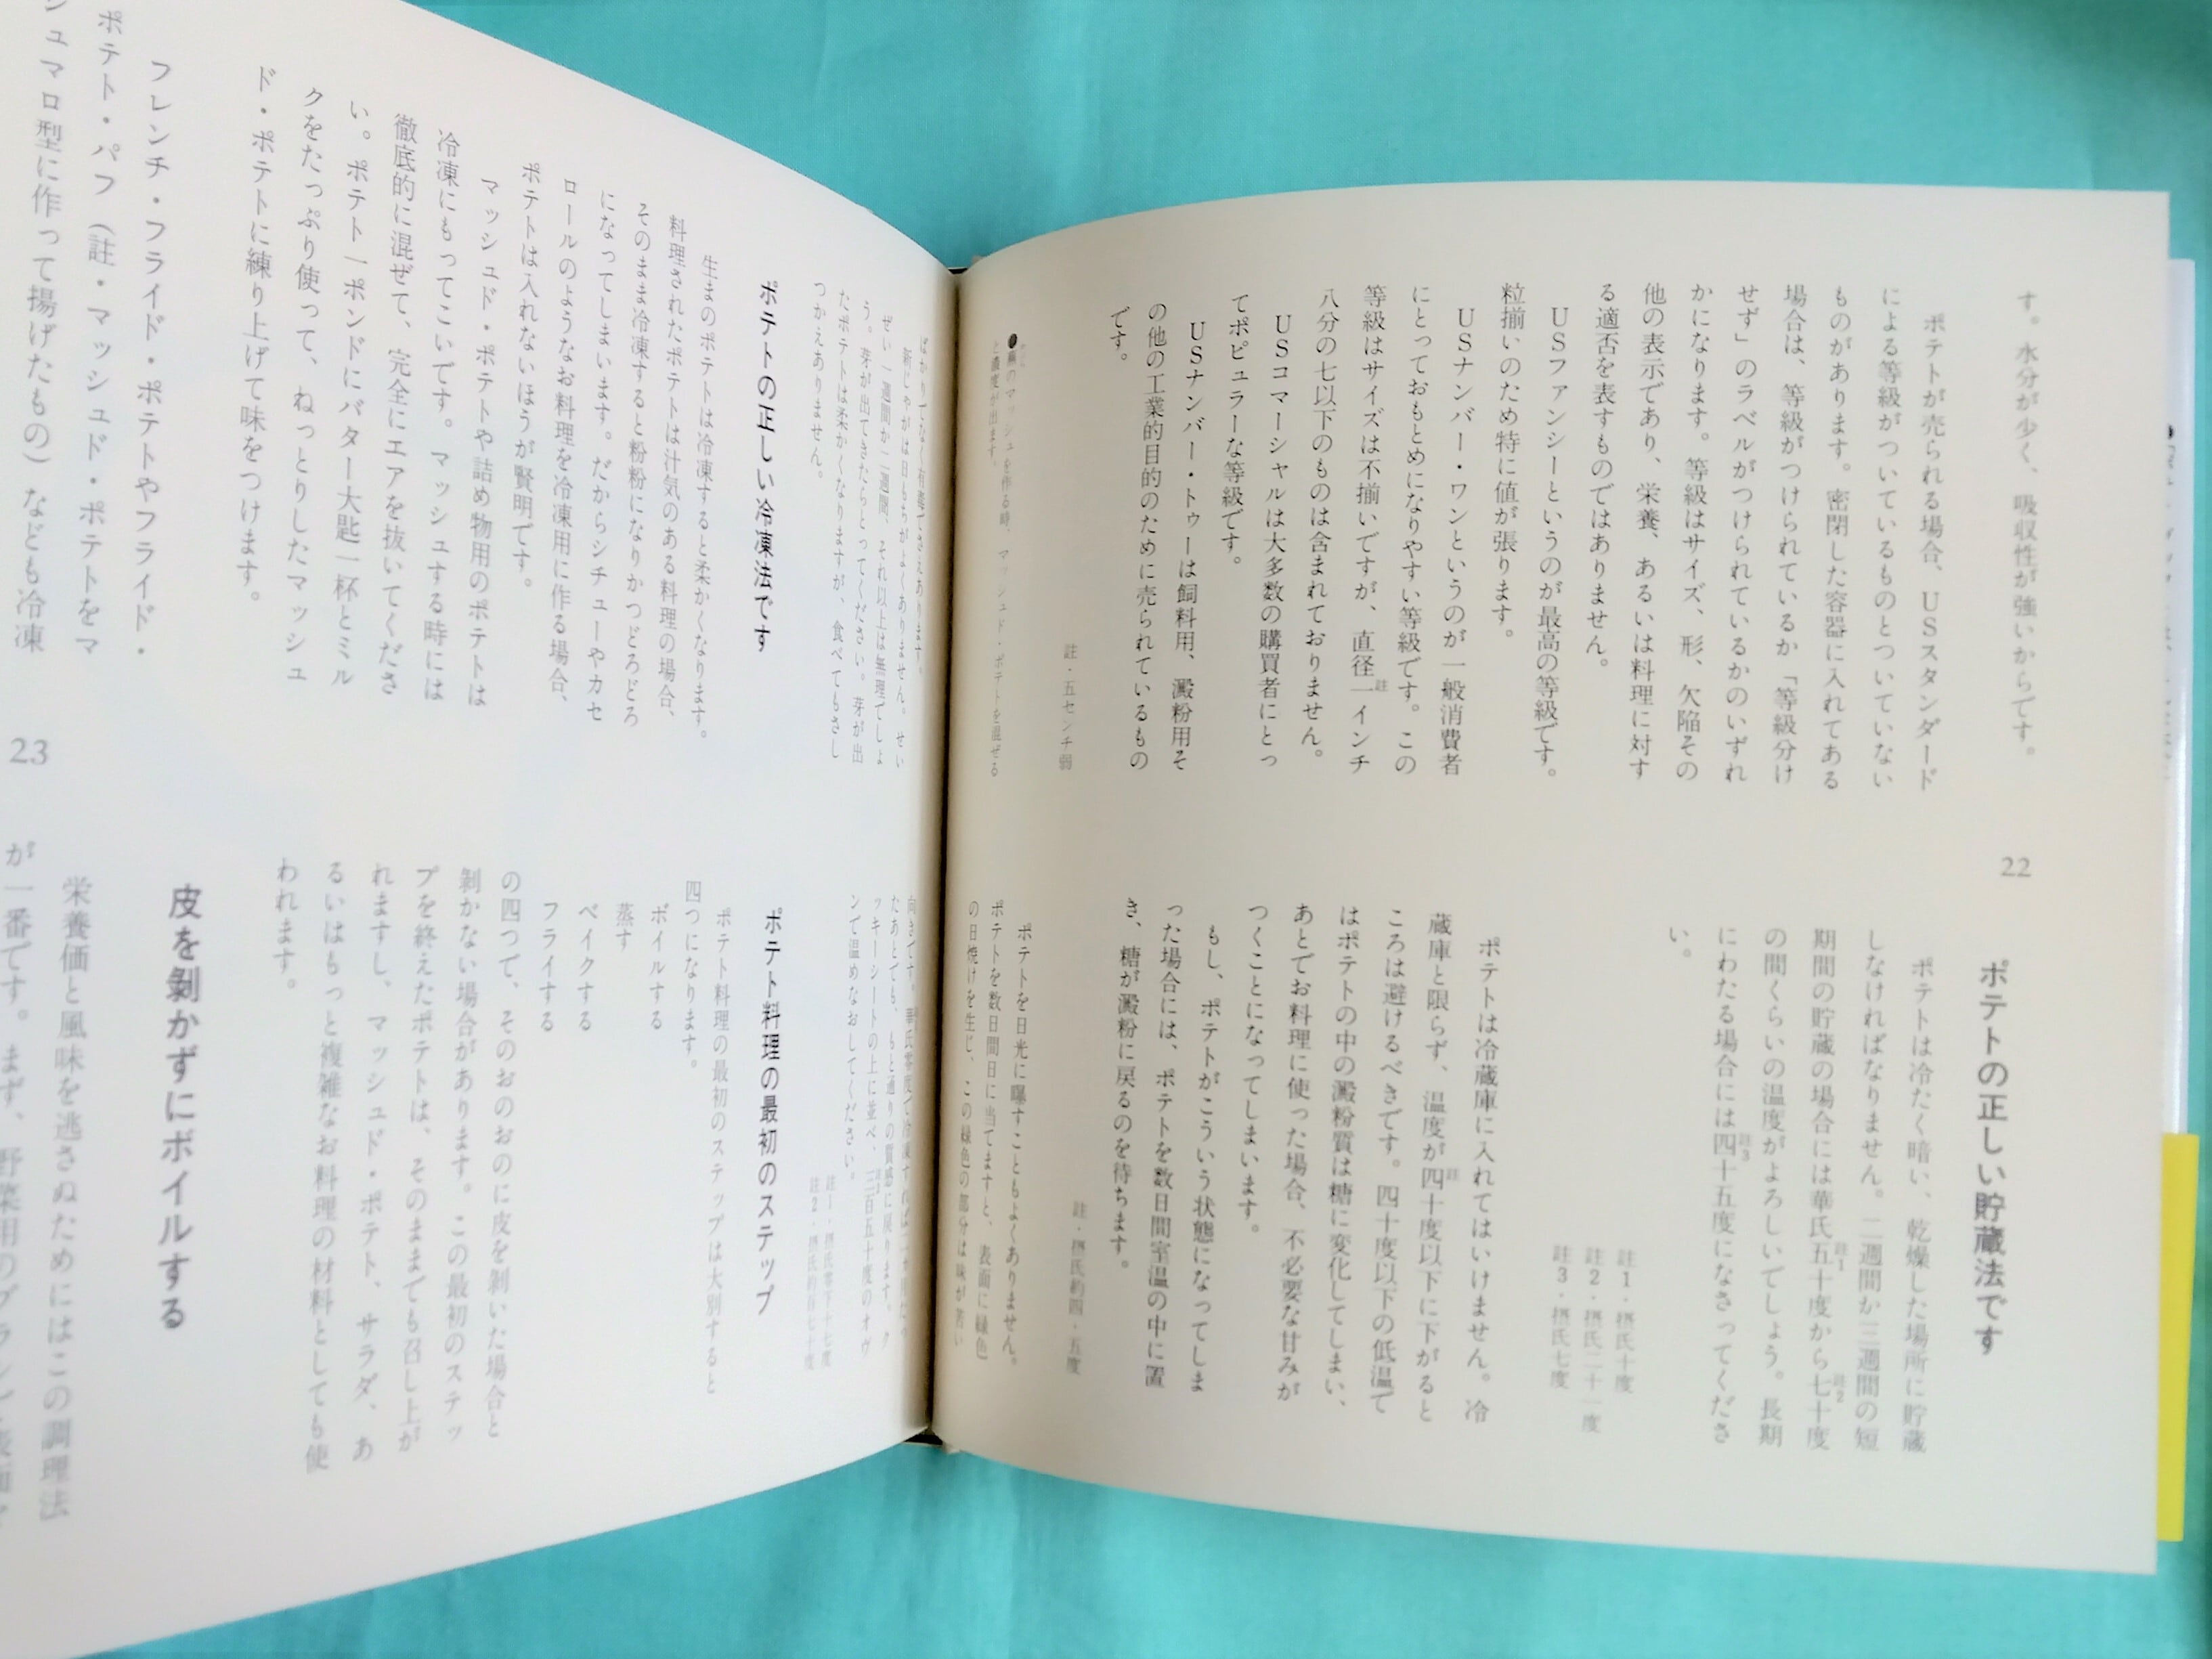 す。水分が少く、吸収性が強いからです。
ポテトが売られる場合、USスタンダード
による等級がついているものとついていない
ものがあります。密閉した容器に入れてある
場合は、等級がつけられているか「等級分け
せず」のラベルがつけられているかのいずれ
かになります。等級はサイズ、形、欠陥その
他の表示であり、栄養、あるいは料理に対す
る適否を表すものではありません。
USファンシーというのが最高の等級です。
粒揃いのため特に値が張ります。
USナンバー・ワンというのが一般消費者
にとっておもとめになりやすい等級です。この
等級はサイズは不揃いですが、直径一インチ
註
八分の七以下のものは含まれておりません。
USコマーシャルは大多数の購買者にとっ
てポピュラーな等級です。
USナンバー・トゥーは飼料用、澱粉用そ
の他の工業的目的のために売られているもの
です。
註・五センチ弱
のマッシュを作る時、マッシュド・ポテトを混ぜる
と濃度が出ます。
22
ポテトの正しい貯蔵法です
ポテトは冷たく暗い、乾燥した場所に貯蔵
しなければなりません。二週間か三週間の短
期間の貯蔵の場合には華氏五十度から七十度
註1
註2
の間くらいの温度がよろしいでしょう。長期
にわたる場合には四十五度になさってくださ
註3
い。
註1・摂氏十度
註2・摂氏二十一度
註3・摂氏七度
ポテトは冷蔵庫に入れてはいけません。冷
蔵庫と限らず、温度が四十度以下に下がると
註
ころは避けるべきです。四十度以下の低温で
はポテトの中の澱粉質は糖に変化してしまい、
あとでお料理に使った場合、不必要な甘みが
つくことになってしまいます。
もし、ポテトがこういう状態になってしま
った場合には、ポテトを数日間室温の中に置
き、糖が澱粉に戻るのを待ちます。
註・摂氏約四・五度
ポテトを日光に曝すこともよくありません。
ポテトを数日間日に当てますと、表面に緑色
の日焼けを生じ、この緑色の部分は味が苦い
ばかりでなく有毒でさえあります。
新じゃがは日もちがよくありません。せい
ぜい一週間か二週間、それ以上は無理でしょ
う。芽が出てきたらとってください。芽が出
たポテトは柔かくなりますが、食べてもさし
つかえありません。
ポテトの正しい冷凍法です
生まのポテトは冷凍すると柔かくなります。
料理されたポテトは汁気のある料理の場合、
そのまま冷凍すると粉粉になりかつどろどろ
になってしまいます。だからシチューやカセ
ロールのようなお料理を冷凍用に作る場合、
ポテトは入れないほうが賢明です。
マッシュド・ポテトや詰め物用のポテトは
冷凍にもってこいです。マッシュする時には
徹底的に混ぜて、完全にエアを抜いてくださ
い。ポテト一ポンドにバター大匙一杯とミル
クをたっぷり使って、ねっとりしたマッシュ
ド・ポテトに練り上げて味をつけます。
フレンチ・フライド・ポテトやフライド・
ポテト・パフ（註・マッシュド・ポテトをマ
シュマロ型に作って揚げたもの）なども冷凍
23
向きです。華氏零度で冷凍すれば二か月たっ
たあとでも、もと通りの質感に戻ります。ク
ッキーシートの上に並べ、三百五十度のオヴ
ンで温めなおしてください。
註1・摂氏零下十七度
註2・摂氏約百七十度
ポテト料理の最初のステップ
ポテト料理の最初のステップは大別すると
四つになります。
ボイルする
蒸す
ベイクする
フライする
の四つで、そのおのおのに皮を剝いた場合と
剝かない場合があります。この最初のステッ
プを終えたポテトは、そのままでも召し上が
れますし、マッシュド・ポテト、サラダ、あ
るいはもっと複雑なお料理の材料としても使
われます。
皮を剝かずにボイルする
栄養価と風味を逃さぬためにはこの調理法
が一番です。まず、野菜用のブラシで表面を